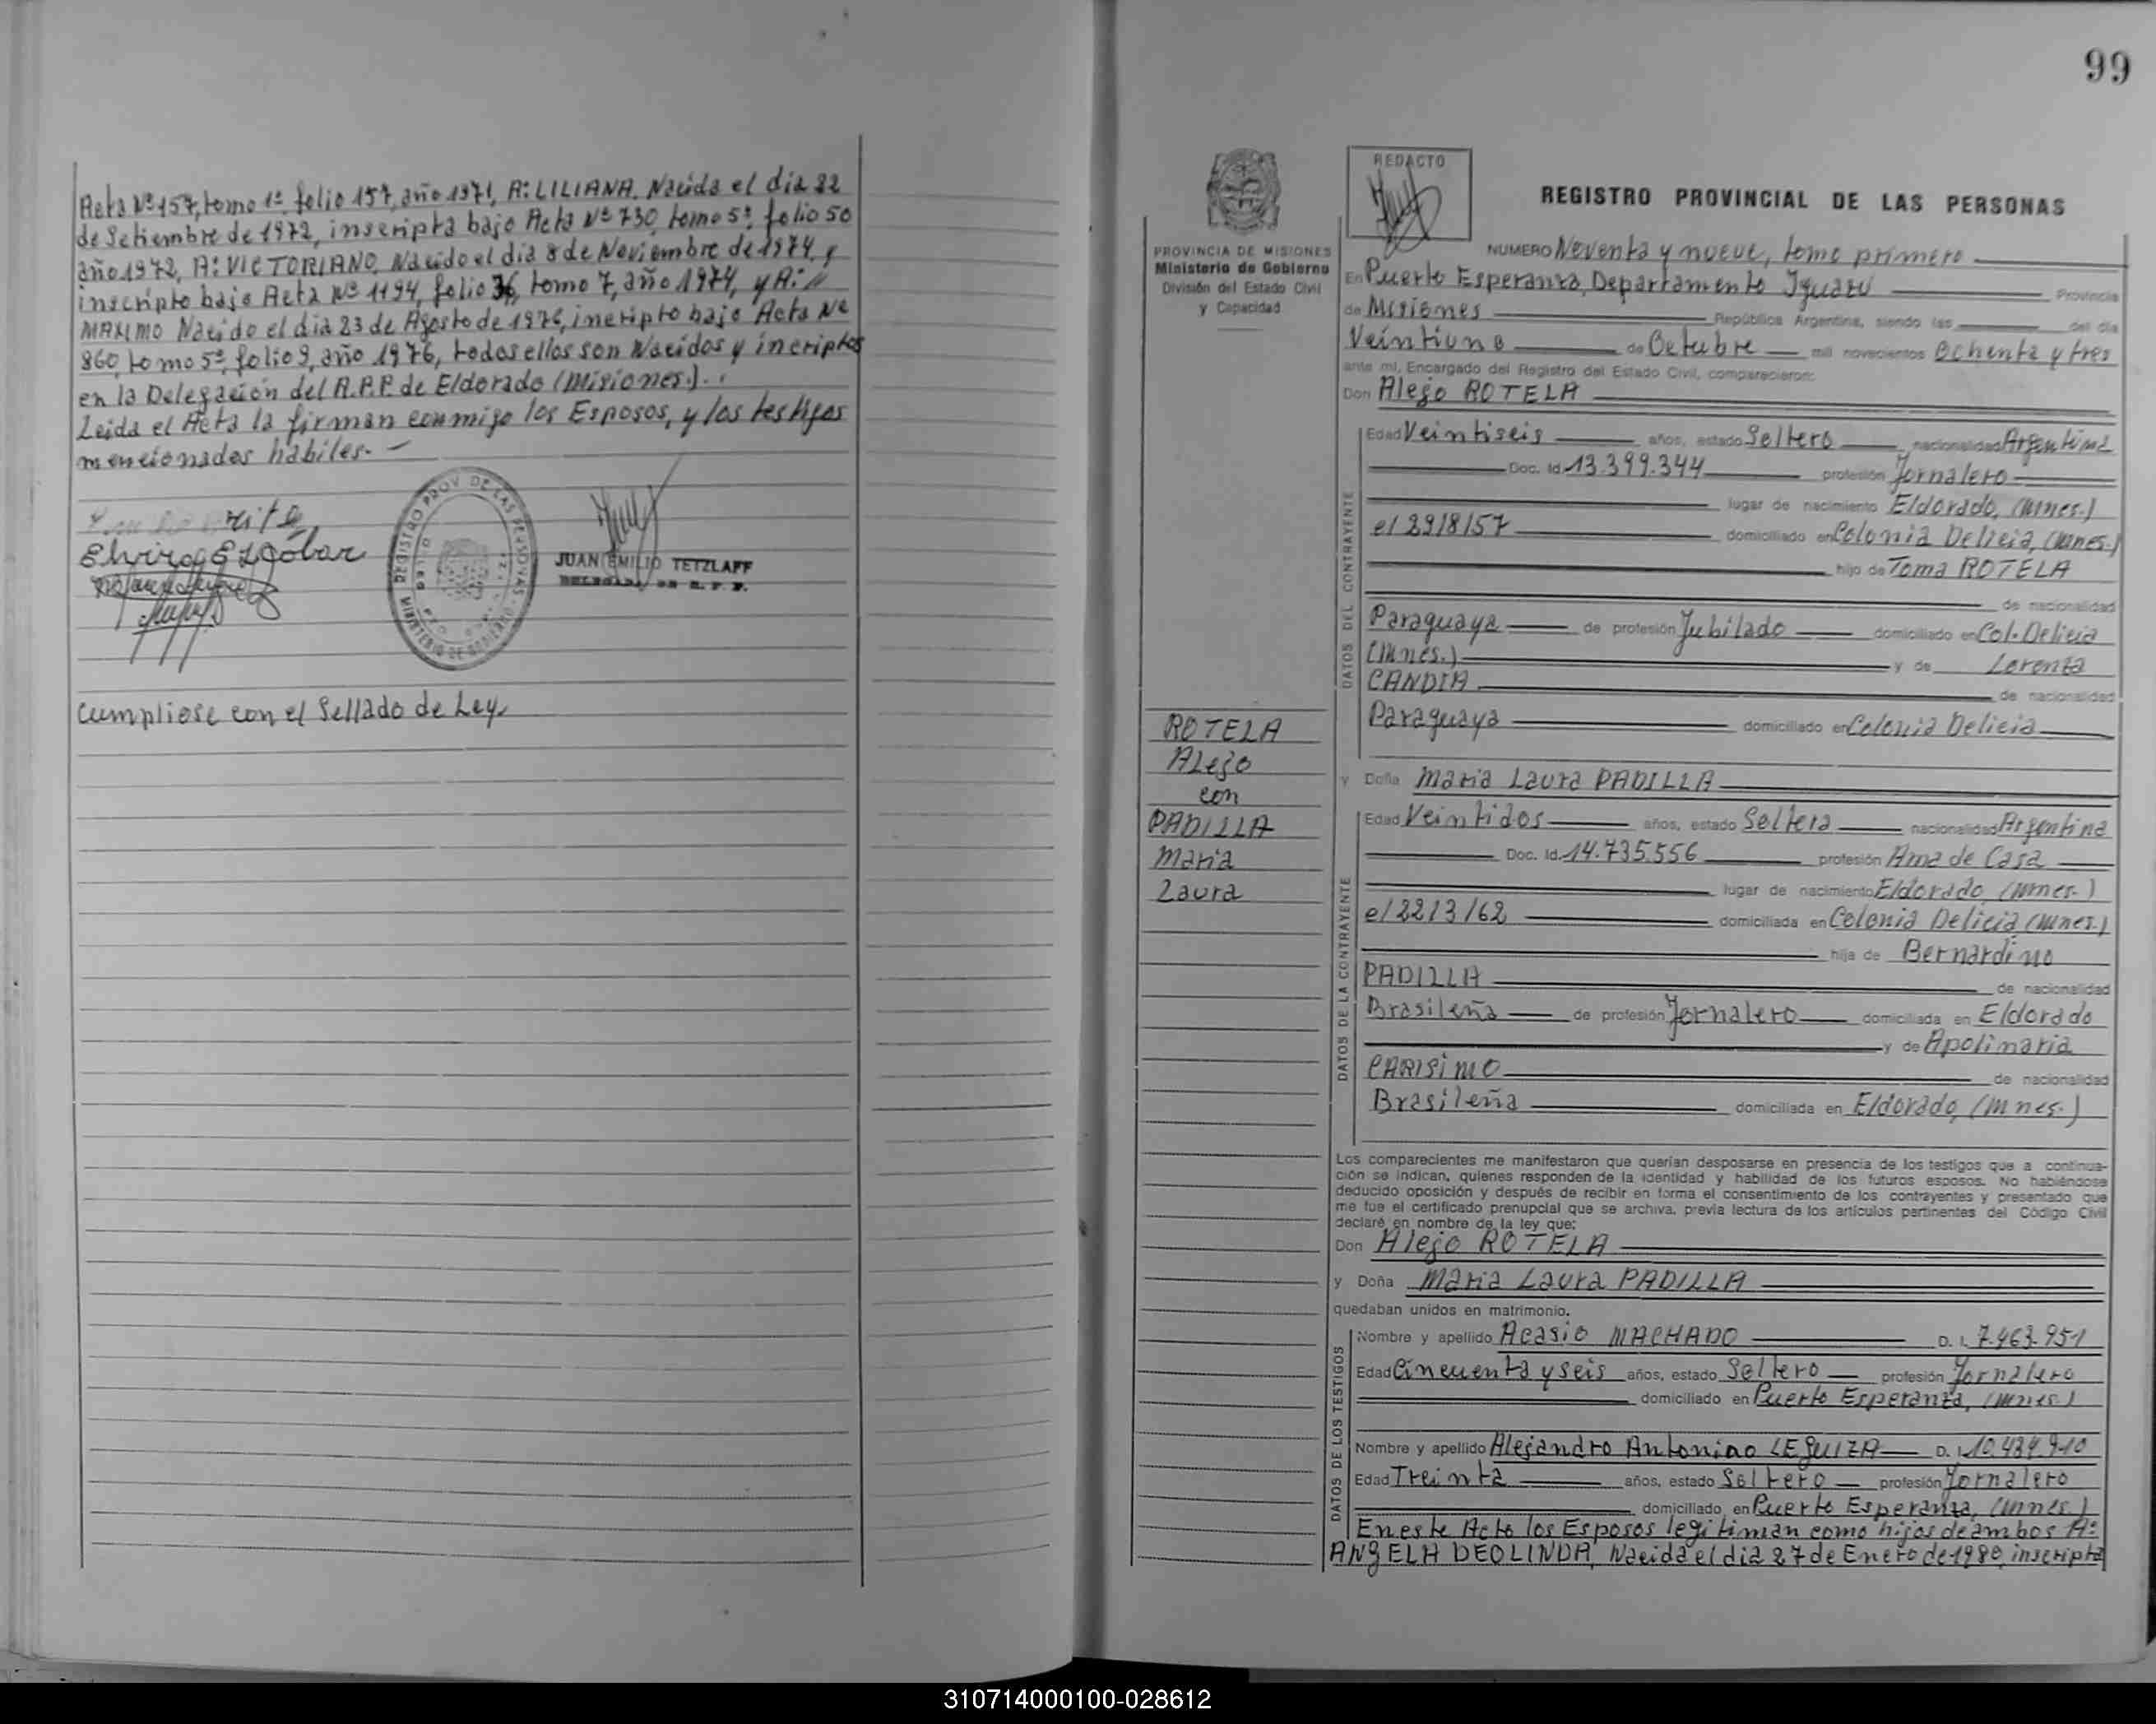 Acta Nº 157, tomo 1º folio 157, año 1971, A: LILIANA, Nacida el dia 22
de Setiembre de 1972, inscripta bajo Acta Nº 730, tomo 5º, folio 50
año 1972, A: VICTORIANO, Nacido el dia 8 de Noviembre de 1974, y
inscripto bajo Acta Nº 1194, folio 36, tomo 7, año 1974, y A: //
MAXIMO Nacido el dia 23 de Agosto de 1976, incripto bajo Acta Nº
860, tomo 5º, folio 9, año 1976, todos ellos son Nacidos y incriptos
en la Delegación del R.P.P. de Eldorado (Misiones.).
Leida el Acta la firman conmigo los Esposos, y los testigos
mencionados habiles.-
Elvira Escobar
REGISTRO PROV. DE LAS PERSONAS
MINISTERIO DE GOBIERNO
JUAN EMILIO TETZLAFF
DELEGADO DE R. P. P.
Cumpliose con el Sellado de Ley.
99
PROVINCIA DE MISIONES
Ministerio de Gobierno
División del Estado Civil
y Capacidad
ROTELA
Alejo
con
PADILLA
Maria
Laura
REDACTO
REGISTRO PROVINCIAL DE LAS PERSONAS
NUMERO Noventa y nueve, tomo primero
En Puerto Esperanza, Departamento Iguazú Provincia
de Misiones República Argentina, siendo las del día
Veintiuno de Octubre mil novecientos Ochenta y tres
ante mi, Encargado del Registro del Estado Civil, comparecieron:
Don Alejo ROTELA
DATOS DEL CONTRAYENTE
Edad Veintiseis años, estado Soltero nacionalidad Argentina
Doc. Id. 13.399.344 profesión Jornalero
lugar de nacimiento Eldorado, (Mnes.)
el 29/8/57 domiciliado en Colonia Delicia, (Mnes.)
hijo de Toma ROTELA
de nacionalidad
Paraguaya de profesión Jubilado domiciliado en Col. Delicia
(Mnes.) y de Lorenza
CANDIA de nacionalidad
Paraguaya domiciliado en Colonia Delicia
y Doña Maria Laura PADILLA
DATOS DE LA CONTRAYENTE
Edad Veintidos años, estado Soltera nacionalidad Argentina
Doc. Id. 14.735.556 profesión Ama de Casa
lugar de nacimiento Eldorado, (Mnes.)
el 22/3/62 domiciliada en Colonia Delicia (Mnes.)
hija de Bernardino
PADILLA de nacionalidad
Brasileña de profesión Jornalero domiciliada en Eldorado
y de Apolinaria
CARISIMO de nacionalidad
Brasileña domiciliada en Eldorado, (Mnes.)
Los comparecientes me manifestaron que querían desposarse en presencia de los testigos que a continua-
ción se indican, quienes responden de la identidad y habilidad de los futuros esposos. No habiéndose
deducido oposición y después de recibir en forma el consentimiento de los contrayentes y presentado que
me fue el certificado prenupcial que se archiva, previa lectura de los artículos pertinentes del Código Civil
declaré en nombre de la ley que:
Don Alejo ROTELA
y Doña Maria Laura PADILLA
quedaban unidos en matrimonio.
DATOS DE LOS TESTIGOS
Nombre y apellido Acasio MACHADO D. I. 7.463.951
Edad Cincuenta y seis años, estado Soltero profesión Jornalero
domiciliado en Puerto Esperanza, (Mnes.)
Nombre y apellido Alejandro Antonino LEGUIZA D. I. 10.434.910
Edad Treinta años, estado Soltero profesión Jornalero
domiciliado en Puerto Esperanza, (Mnes.)
En este Acto los Esposos legitiman como hijos de ambos A:
ANGELA DEOLINDA, Nacida el dia 27 de Enero de 1980, inscripta
310714000100-028612